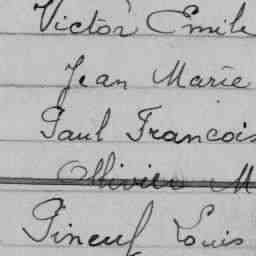 Victor Emile
Jean Marie
Paul Francois
Ollivier M
Pineuf Louis